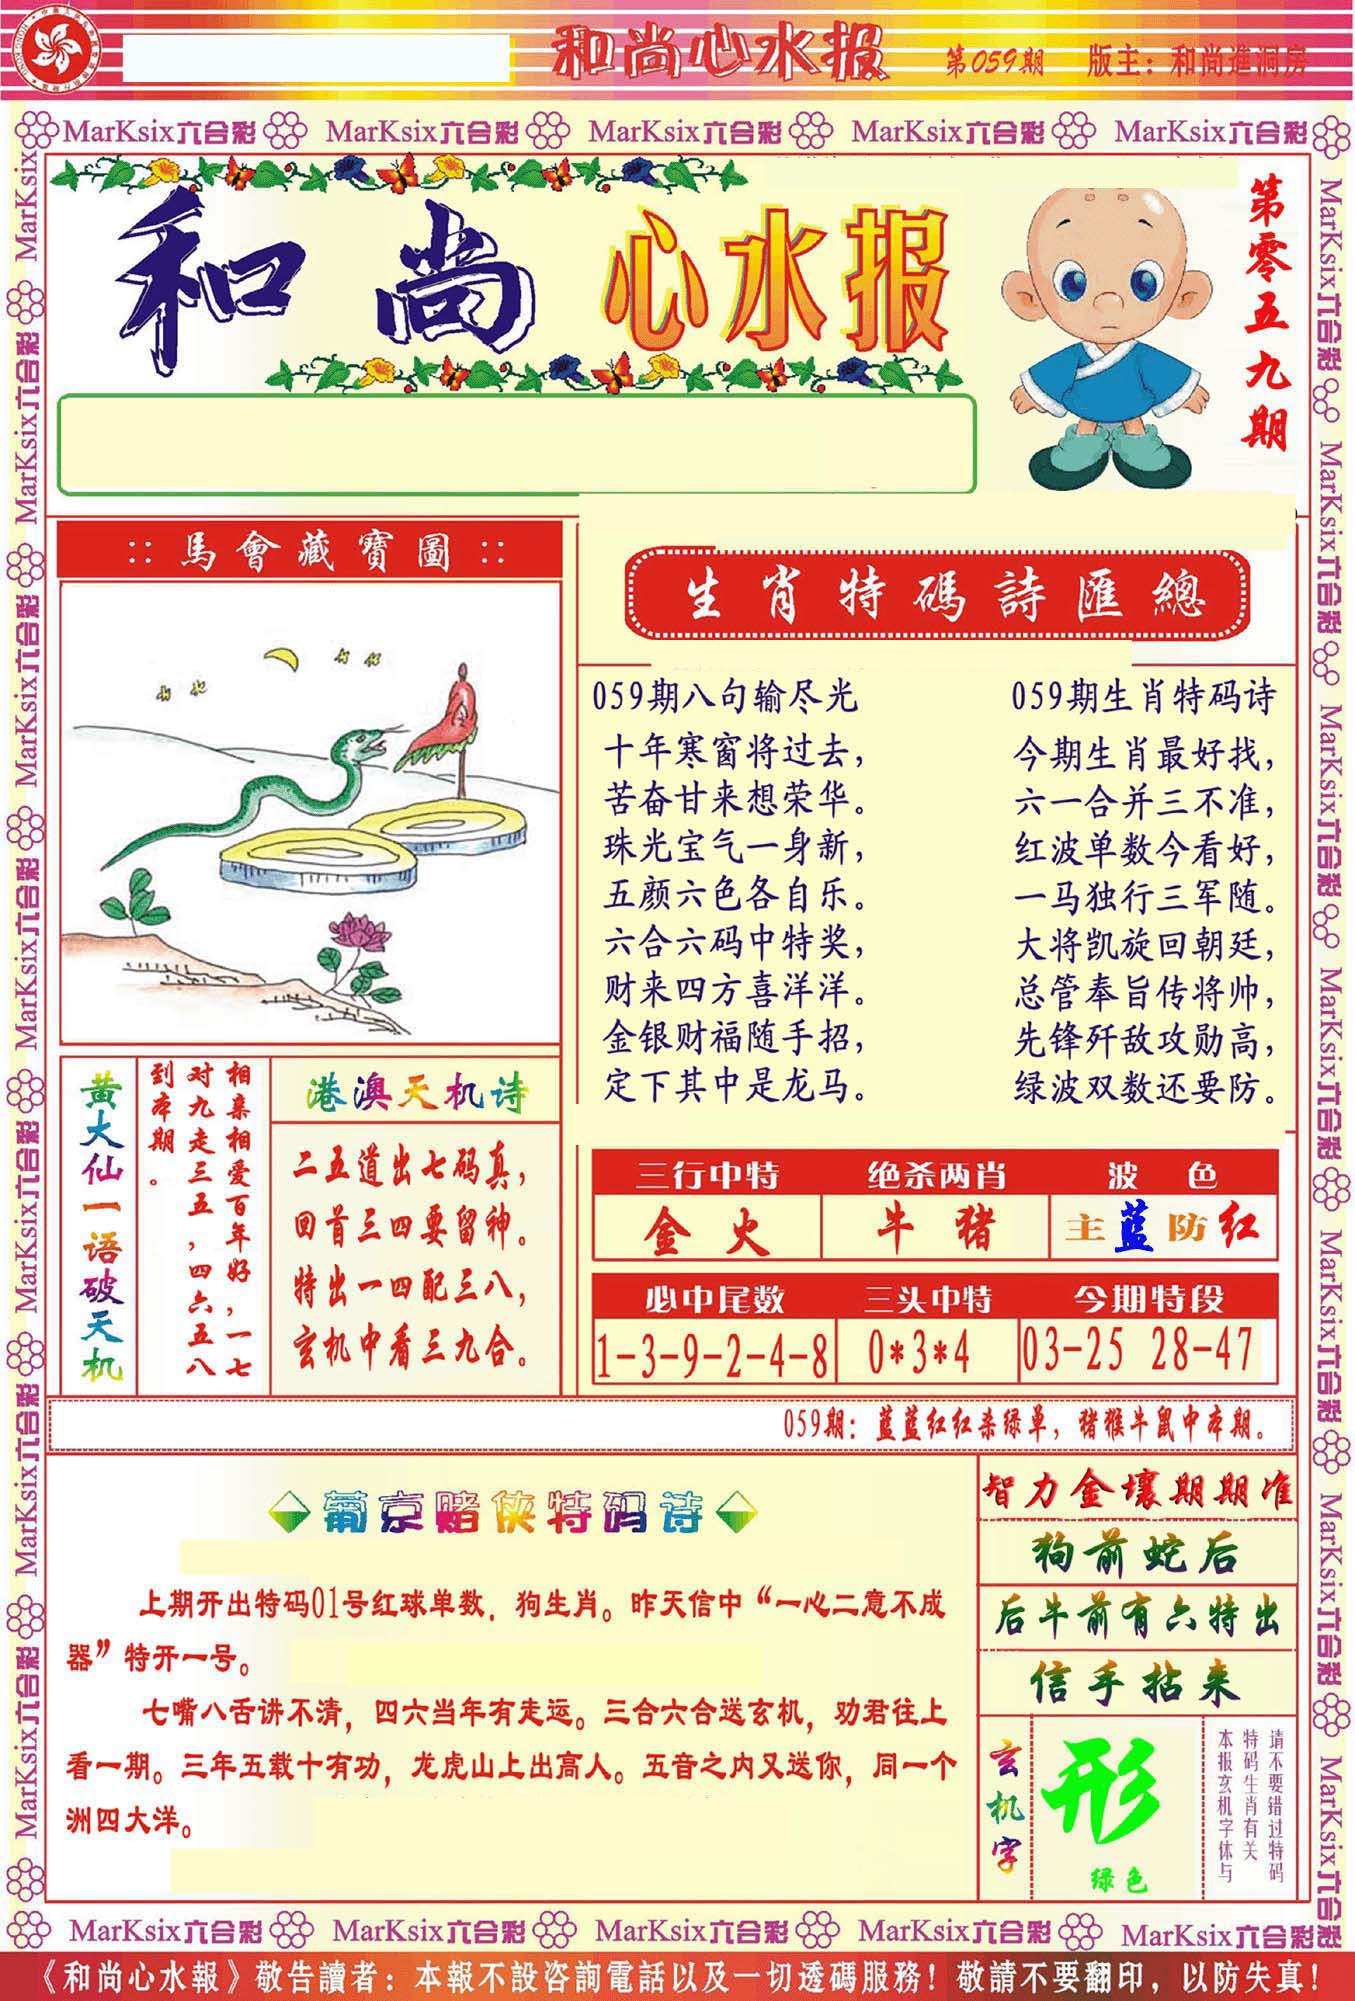 和尚心水报 第059期 版主：和尚進洞房
MarKsix六合彩 MarKsix六合彩 MarKsix六合彩 MarKsix六合彩 MarKsix六合彩
和尚心水报
第零五九期
::馬會藏寶圖::
生肖特碼詩匯總
059期八句输尽光
十年寒窗将过去，
苦奋甘来想荣华。
珠光宝气一身新，
五颜六色各自乐。
六合六码中特奖，
财来四方喜洋洋。
金银财福随手招，
定下其中是龙马。
059期生肖特码诗
今期生肖最好找，
六一合并三不准，
红波单数今看好，
一马独行三军随。
大将凯旋回朝廷，
总管奉旨传将帅，
先锋歼敌攻勋高，
绿波双数还要防。
黄大仙一语破天机
相亲相爱百年好，一七
对九走三五，四六五八
到本期。
港澳天机诗
二五道出七码真，
回首三四要留神。
特出一四配三八，
玄机中看三九合。
三行中特 绝杀两肖 波色
金火 牛猪 主蓝防红
必中尾数 三头中特 今期特段
1-3-9-2-4-8 0*3*4 03-25 28-47
059期：蓝蓝红红杀绿单，猪猴牛鼠中本期。
葡京赌侠特码诗
上期开出特码01号红球单数，狗生肖。昨天信中“一心二意不成
器”特开一号。
七嘴八舌讲不清，四六当年有走运。三合六合送玄机，劝君往上
看一期。三年五载十有功，龙虎山上出高人。五音之内又送你，同一个
洲四大洋。
智力金壤期期准
狗前蛇后
后牛前有六特出
信手拈来
玄机字
形
绿色
请不要错过特码
特码生肖有关
本报玄机字体与
MarKsix六合彩 MarKsix六合彩 MarKsix六合彩 MarKsix六合彩 MarKsix六合彩
《和尚心水報》敬告讀者：本報不設咨詢電話以及一切透碼服務！敬請不要翻印，以防失真！